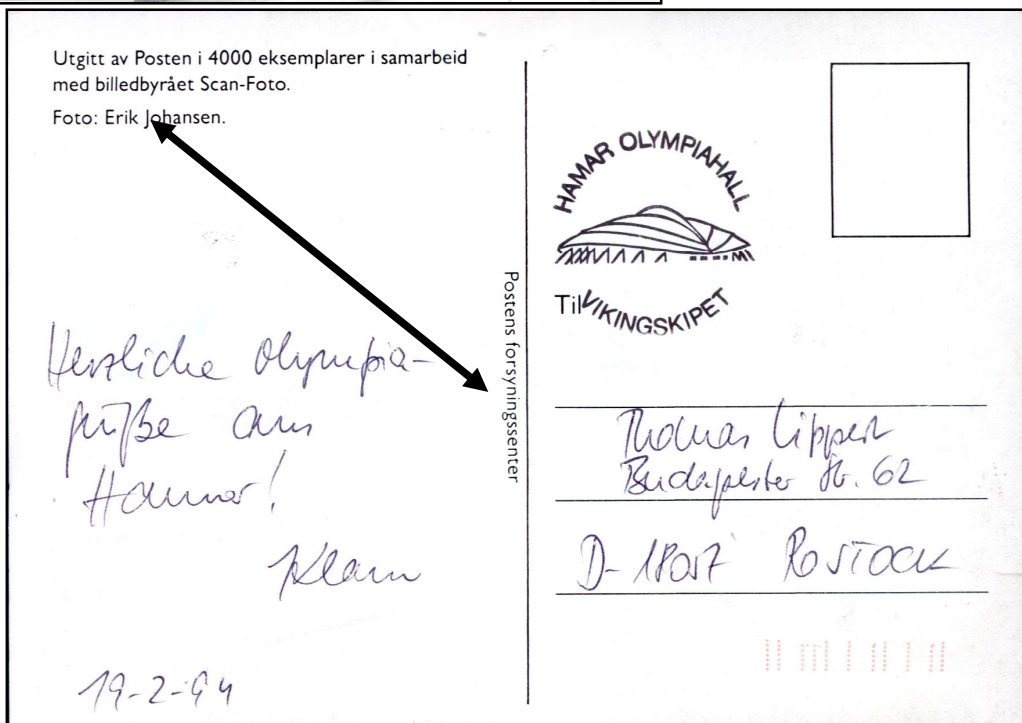 Utgitt av Posten i 4000 eksemplarer i samarbeid
med billedbyrået Scan-Foto.
Foto: Erik Johansen.
Herzliche Olympia-
grüße aus
Hamar!
Klaus
19-2-94
Postens forsyningssenter
HAMAR OLYMPIAHALL
Til
VIKINGSKIPET
Thomas Lippert
Budapester Str. 62
D-18057 ROSTOCK